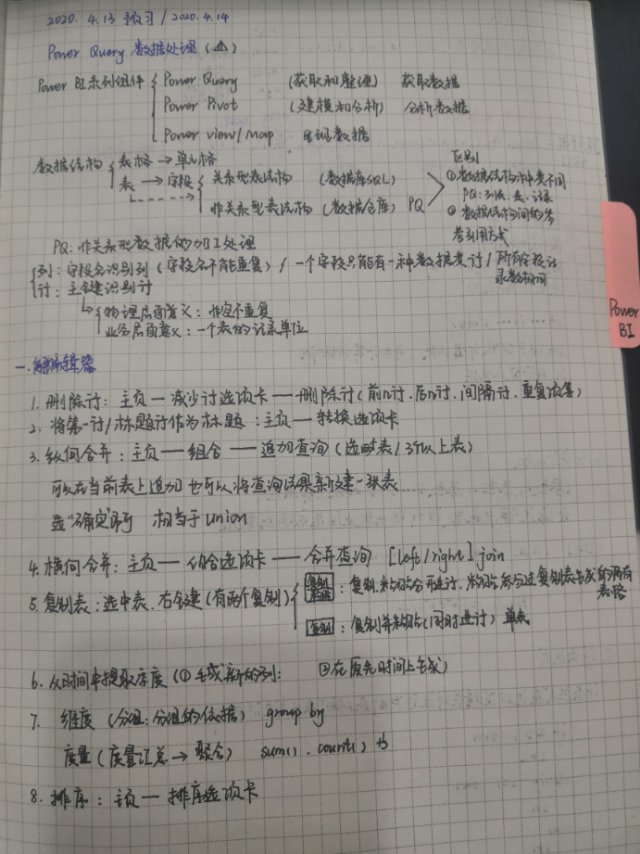 2020. 4.13 预习 / 2020. 4.14
Power Query 数据处理 (⚠)
Power BI系列组件 { Power Query (获取和整理) 获取数据
Power Pivot (建模和分析) 分析数据
Power view/map 数据
数据结构 { 表格 → 单元格
表 → 字段 { 关系型表结构 (数据库SQL)
非关系型表结构 (数据仓库) PQ
区别
①数据结构种类不同
PQ: 列表、表、记录
② 数据结构间的参
考引用方式
PQ: 非关系型数据的加工处理
列: 字段名识别列 (字段名不能重复) / 一个字段只能有一种数据类型 / 所有字段记
录数相同
行: 主键识别行
↳ { 物理层面意义: 非空不重复
业务层面意义: 一个表的记录单位
Power
BI
一. 编辑器
1. 删除行: 主页 — 减少行选项卡 — 删除行 (前n行、后n行、间隔行、重复项等)
2. 将第一行/标题行作为标题: 主页 — 转换选项卡
3. 纵向合并: 主页 — 组合 — 追加查询 (选两表/3个以上表)
可以在当前表上追加 也可以将查询结果新建一张表
选"确定"即可 相当于union
4. 横向合并: 主页 — 组合选项卡 — 合并查询 [left/right] join
5. 复制表: 选中表, 右键 (有两个复制) { 复制 : 复制、粘贴分开进行, 粘贴 复制表生成的所有
表格
复制 : 复制并粘贴 (同时进行) 单表
6. 从时间中提取季度 (① 生成新的列: ②在原先时间上生成)
7. 维度 (分组: 分组的依据) group by
度量 (度量汇总 → 聚合) sum(). count() 等
8. 排序: 主页 — 排序选项卡